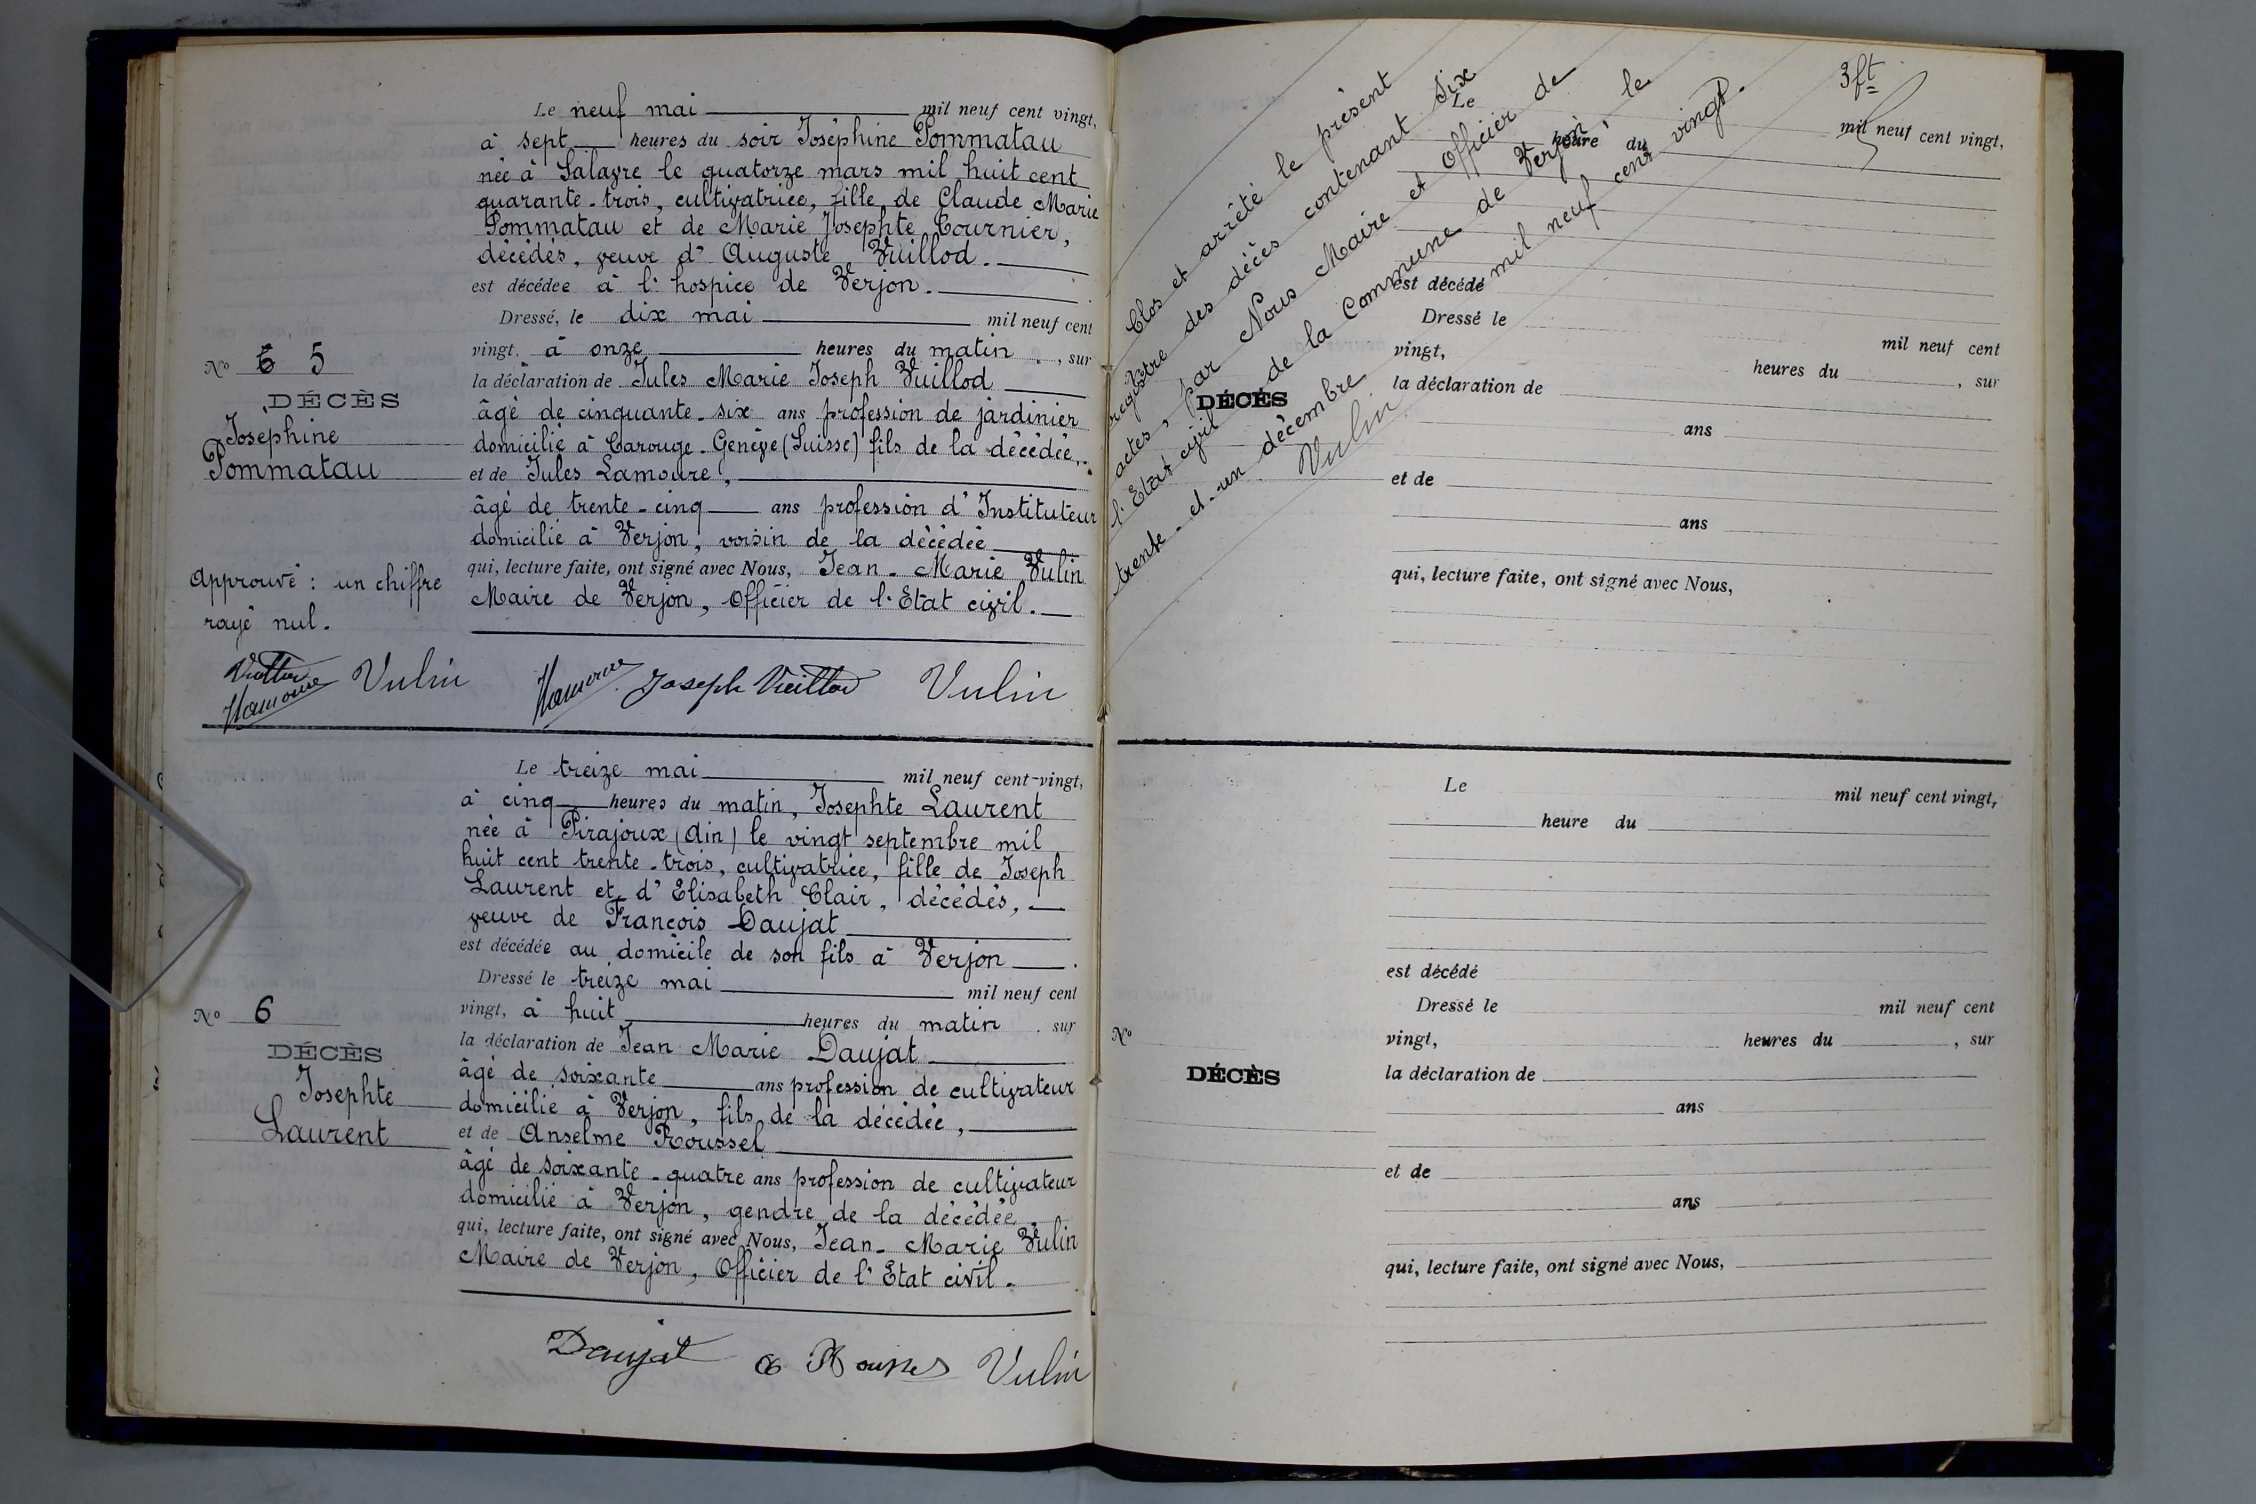 Le neuf mai mil neuf cent vingt,
à sept heures du soir Joséphine Pommatau
née à Salavre le quatorze mars mil huit cent
quarante-trois, cultivatrice, fille de Claude Marie
Pommatau et de Marie Josephte Cournier,
décédés, veuve d'Auguste Vuillod.
est décédée à l'hospice de Verjon.
Dressé, le dix mai mil neuf cent
vingt, à onze heures du matin, sur
la déclaration de Jules Marie Joseph Vuillod
âgé de cinquante-six ans profession de jardinier
domicilié à Carouge-Genève (Suisse) fils de la décédée,
et de Jules Lamoure,
âgé de trente-cinq ans profession d'Instituteur
domicilié à Verjon, voisin de la décédée
qui, lecture faite, ont signé avec Nous, Jean-Marie Vulin
Maire de Verjon, Officier de l'Etat civil.
No 6 5
DÉCÈS
Joséphine
Pommatau
Approuvé : un chiffre
rayé nul.
Lamoure Vulin Lamoure Joseph Vuillod Vulin
Le treize mai mil neuf cent-vingt,
à cinq heures du matin, Josephte Laurent
née à Pirajoux (Ain) le vingt septembre mil
huit cent trente-trois, cultivatrice, fille de Joseph
Laurent et d'Elisabeth Clair, décédés,
veuve de François Daujat
est décédée au domicile de son fils à Verjon
Dressé le treize mai mil neuf cent
vingt, à huit heures du matin, sur
la déclaration de Jean Marie Daujat
âgé de soixante ans profession de cultivateur
domicilié à Verjon, fils de la décédée,
et de Anselme Roussel
âgé de soixante-quatre ans profession de cultivateur
domicilié à Verjon, gendre de la décédée.
qui, lecture faite, ont signé avec Nous, Jean-Marie Vulin
Maire de Verjon, Officier de l'Etat civil.
No 6
DÉCÈS
Josephte
Laurent
Daujat A Roussel Vulin
3 ft
Clos et arrêté le présent
registre des décès contenant six
actes, par Nous Maire et Officier de
l'Etat civil de la Commune de Verjon, le
trente-et-un décembre mil neuf cent vingt.
Vulin
Le mil neuf cent vingt,
heure du
est décédé
Dressé le mil neuf cent
vingt, heures du , sur
DÉCÈS
la déclaration de
ans
et de
ans
qui, lecture faite, ont signé avec Nous,
Le mil neuf cent vingt,
heure du
est décédé
Dressé le mil neuf cent
No
vingt, heures du , sur
DÉCÈS
la déclaration de
ans
et de
ans
qui, lecture faite, ont signé avec Nous,